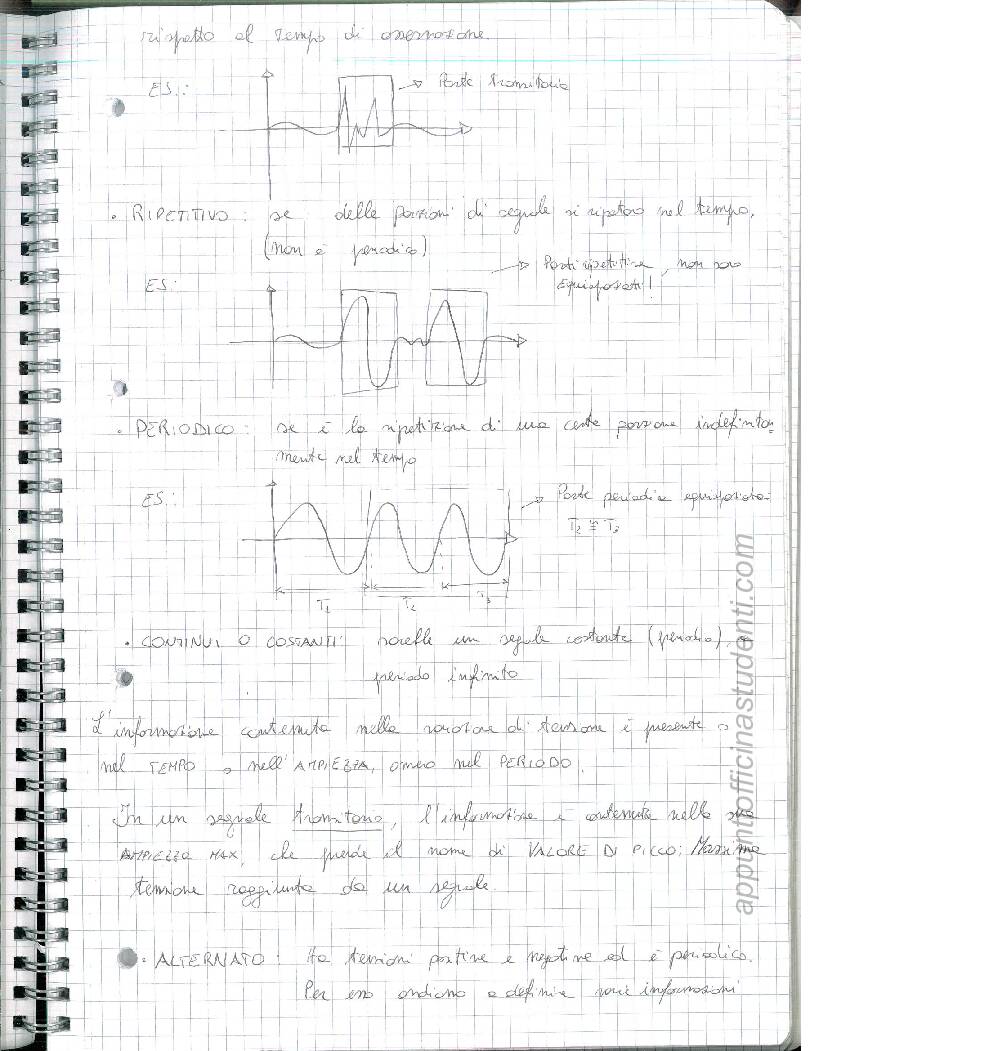 rispetto al tempo di osservazione.
ES.: → Parte transitoria
• RIPETITIVO: se delle porzioni di segnale si ripetono nel tempo.
(non è periodico)
→ Parti ripetitive, non sono
ES: Equispaziati!
• PERIODICO: se è la ripetizione di una certa porzione indefinita=
mente nel tempo
ES: → Parte periodica
T₁ T₂ T₃
• CONTINUI O COSTANTI: sarebbe un segnale costante (periodico) a
periodo infinito
L'informazione contenuta nella variazione di tensione è presente o
nel TEMPO o nell'AMPIEZZA, ovvero nel PERIODO.
In un segnale transitorio, l'informazione è contenuta nella sua
AMPIEZZA MAX, che prende il nome di VALORE DI PICCO: Massima
tensione raggiunta da un segnale.
• ALTERNATO: Ha tensioni positive e negative ed è periodico.
Per esso andiamo a definire varie informazioni
appuntiofficinastudenti.com